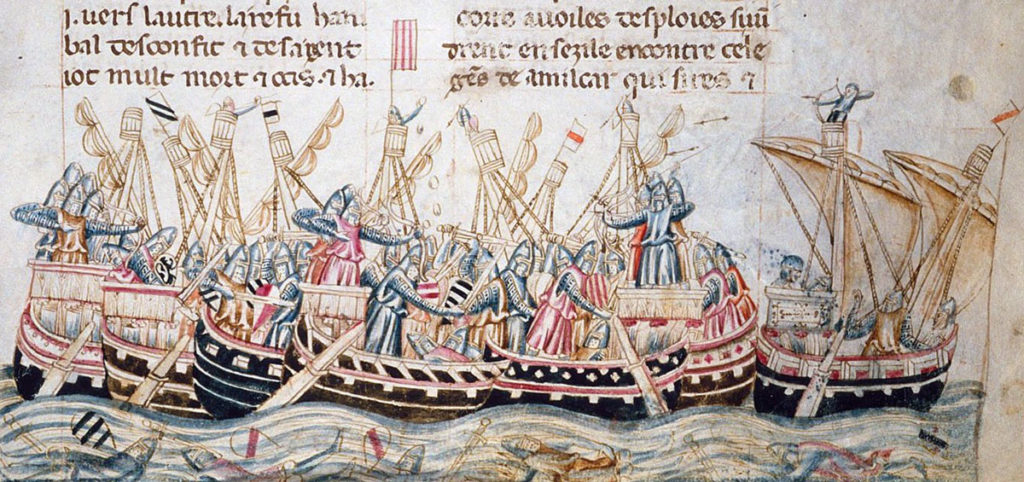 uers lautre. la refu hani
bal desconfit ⁊ de sa gent
iot mult mort ⁊ ocis. ⁊ ha.
corre auoiles desploies
drent en sezile encontre cele
gẽs de amilcar qui sires ⁊